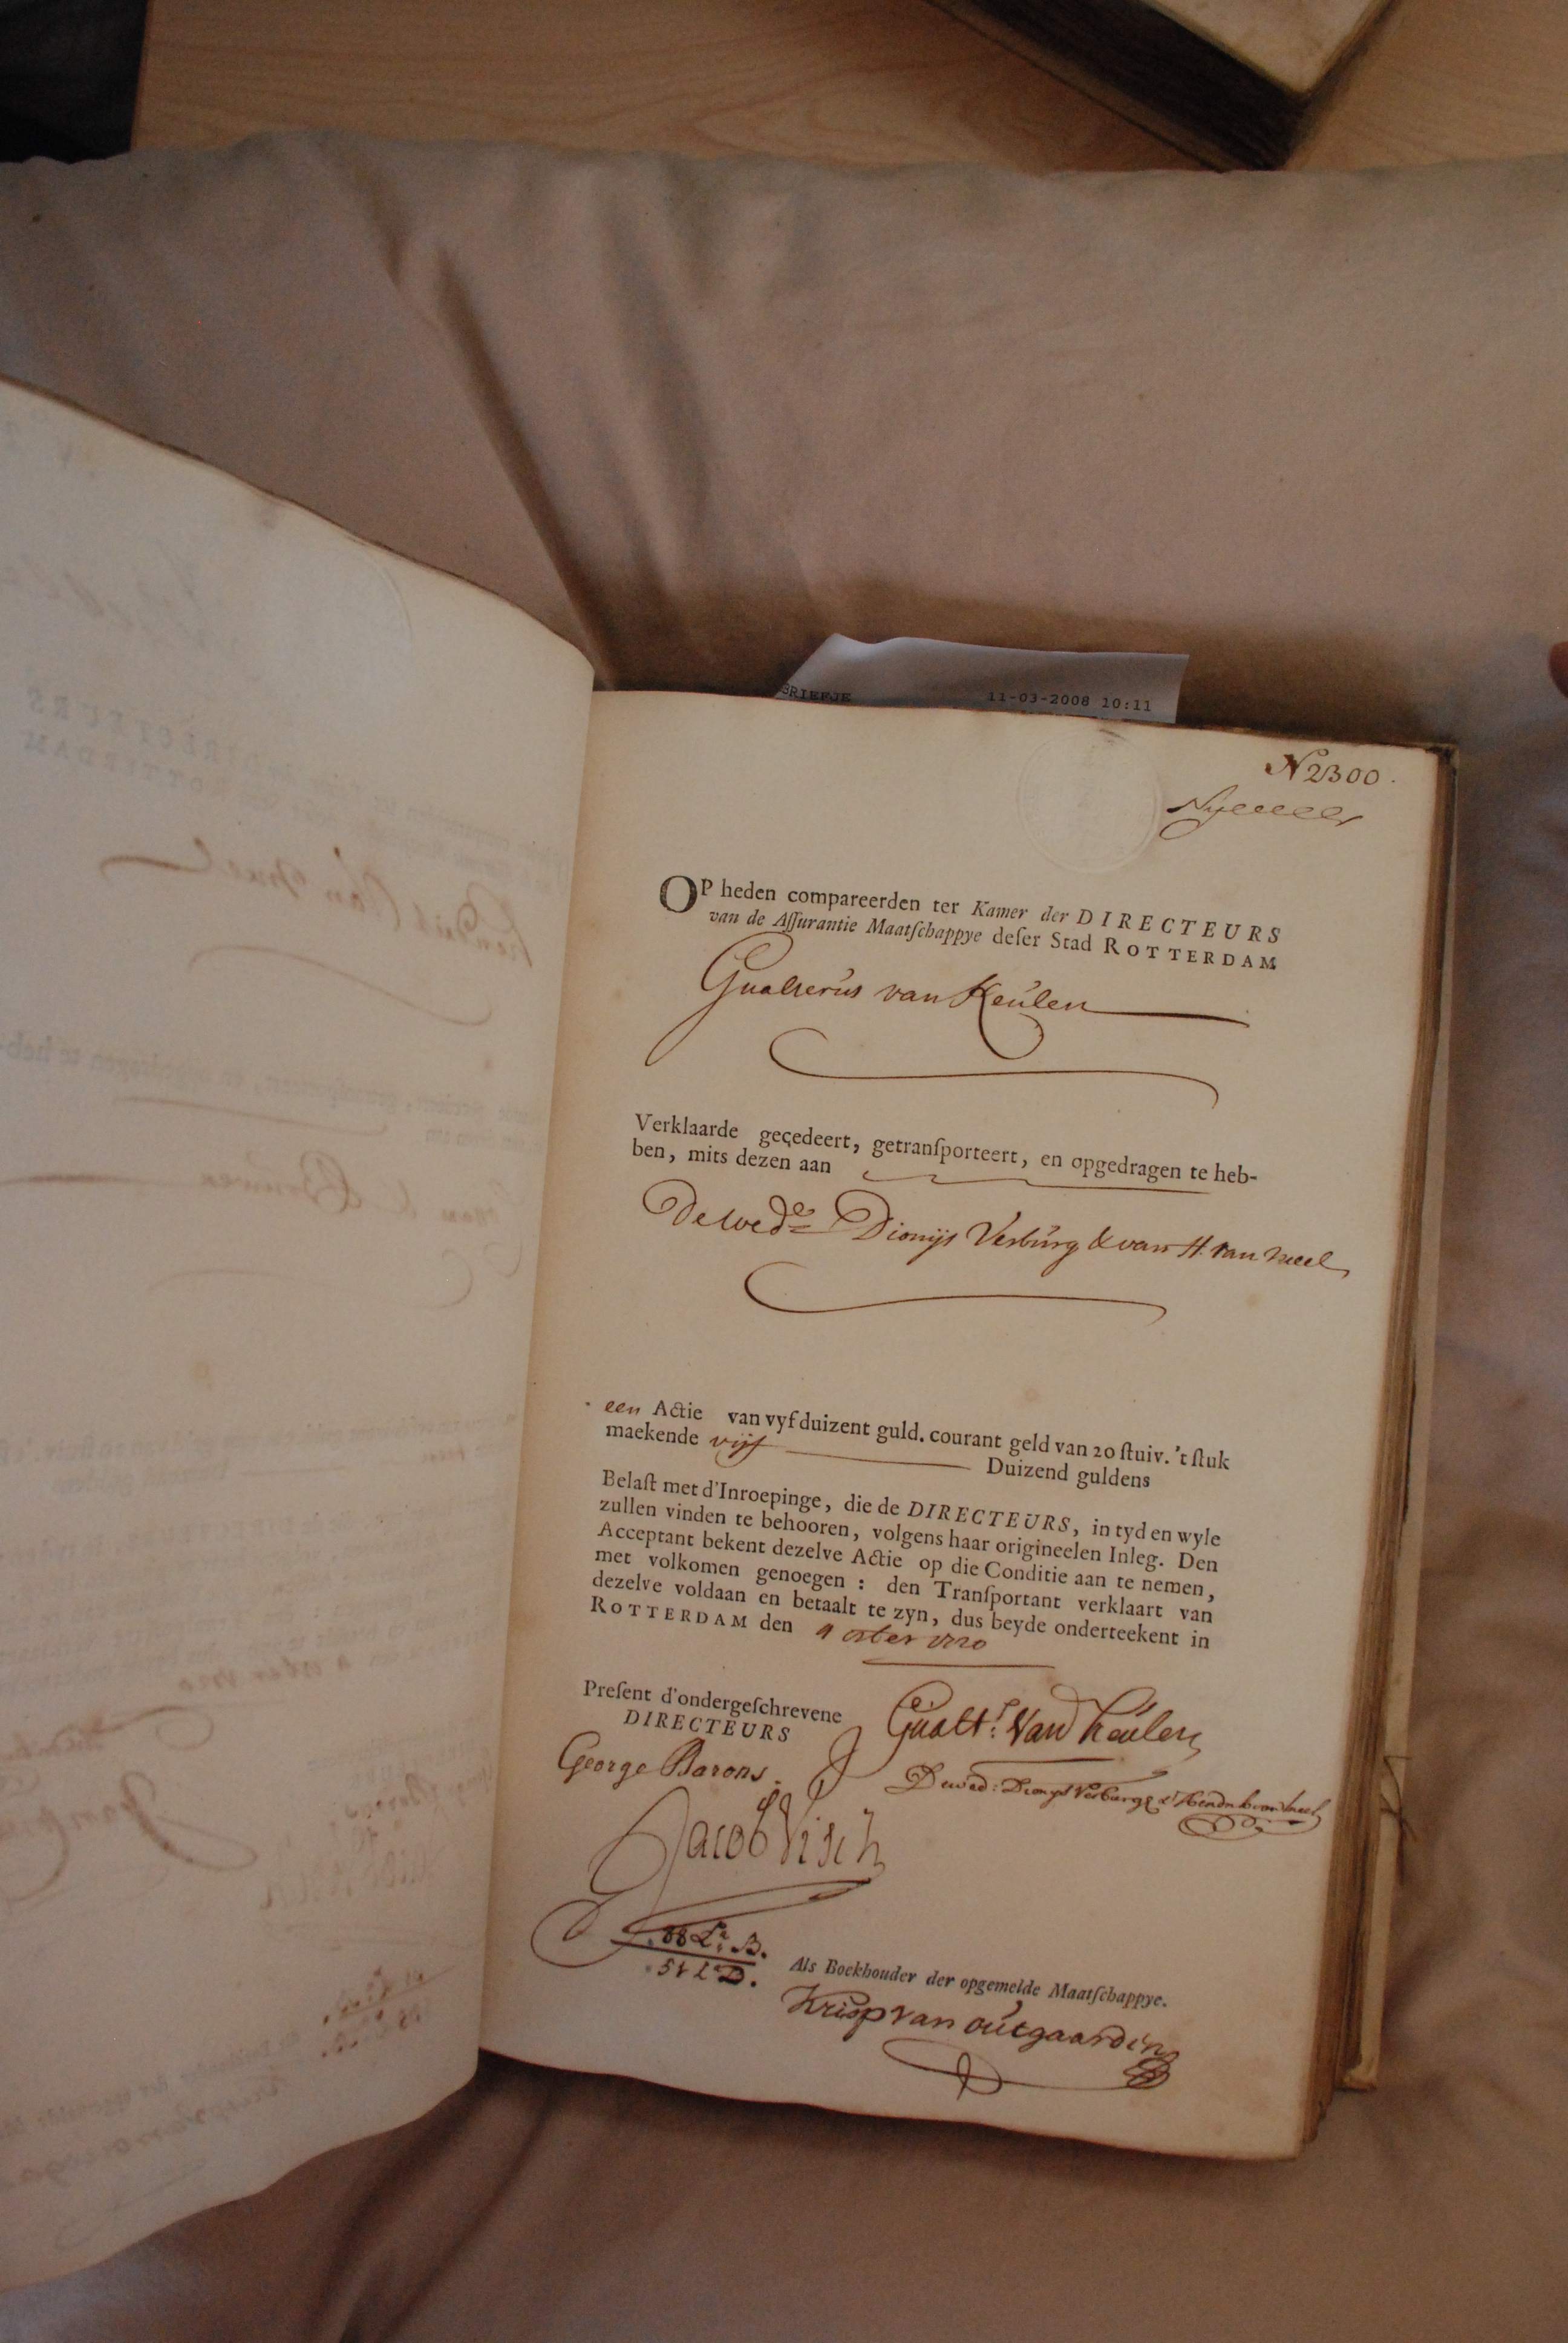 BRIEFJE 11-03-2008 10:11
N 2300.
OP heden compareerden ter Kamer der DIRECTEURS
van de Aſſurantie Maatſchappye deſer Stad ROTTERDAM
Gualterus van Keulen
Verklaarde geçedeert, getranſporteert, en opgedragen te heb-
ben, mits dezen aan
De wede Dionijs Verburg & van H. van Meel
een Actie van vyfduizent guld. courant geld van 20 ſtuiv. 't ſtuk
maekende vijf Duizend guldens
Belaſt met d'Inroepinge, die de DIRECTEURS, in tyd en wyle
zullen vinden te behooren, volgens haar origineelen Inleg. Den
Acceptant bekent dezelve Actie op die Conditie aan te nemen,
met volkomen genoegen : den Tranſportant verklaart van
dezelve voldaan en betaalt te zyn, dus beyde onderteekent in
ROTTERDAM den 4 octber 1720
Preſent d'ondergeſchrevene
DIRECTEURS
Gualtr. Van Keulen
George Barons.
De wed: Dionys Verburg & Hendrik van Meel
Jacob Visch
88 La. B.
51 La D.
Als Boekhouder der opgemelde Maatſchappye.
Krisp van outgaarden